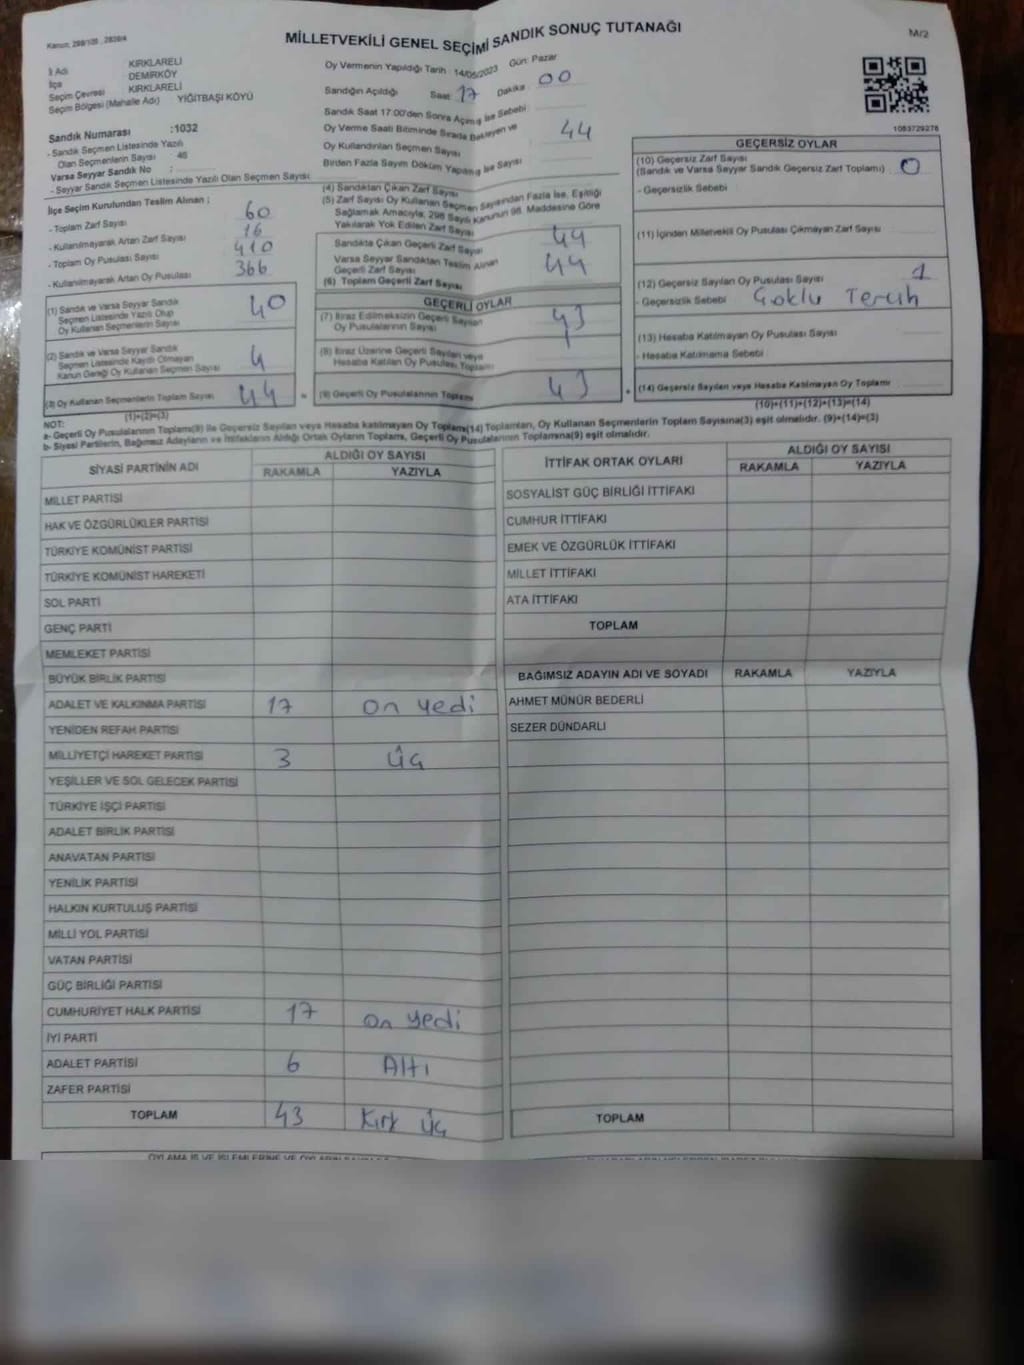 Kanun: 298/105 , 2839/4
MİLLETVEKİLİ GENEL SEÇİMİ SANDIK SONUÇ TUTANAĞI
M/2
İl Adı KIRKLARELİ
İlçe DEMİRKÖY
Seçim Çevresi KIRKLARELİ
Seçim Bölgesi (Mahalle Adı) YİĞİTBAŞI KÖYÜ
Oy Vermenin Yapıldığı Tarih : 14/05/2023 Gün: Pazar
Sandığın Açıldığı Saat: 17 Dakika: 00
Sandık Saat 17:00'den Sonra Açılmış İse Sebebi :
Oy Verme Saati Bitiminde Sırada Bekleyen ve
Oy Kullandırılan Seçmen Sayısı 44
Birden Fazla Sayım Döküm Yapılmış İse Sayısı
1083729278
Sandık Numarası :1032
- Sandık Seçmen Listesinde Yazılı
Olan Seçmenlerin Sayısı : 46
Varsa Seyyar Sandık No :
- Seyyar Sandık Seçmen Listesinde Yazılı Olan Seçmen Sayısı:
İlçe Seçim Kurulundan Teslim Alınan ;
- Toplam Zarf Sayısı 60
- Kullanılmayarak Artan Zarf Sayısı 16
- Toplam Oy Pusulası Sayısı 410
- Kullanılmayarak Artan Oy Pusulası 366
(1) Sandık ve Varsa Seyyar Sandık
Seçmen Listesinde Yazılı Olup
Oy Kullanan Seçmenlerin Sayısı 40
(2) Sandık ve Varsa Seyyar Sandık
Seçmen Listesinde Kayıtlı Olmayan
Kanun Gereği Oy Kullanan Seçmen Sayısı 4
(3) Oy Kullanan Seçmenlerin Toplam Sayısı 44
(1)+(2)=(3)
(4) Sandıktan Çıkan Zarf Sayısı
(5) Zarf Sayısı Oy Kullanan Seçmen Sayısından Fazla İse, Eşitliği
Sağlamak Amacıyla, 298 Sayılı Kanunun 98. Maddesine Göre
Yakılarak Yok Edilen Zarf Sayısı
Sandıkta Çıkan Geçerli Zarf Sayısı 44
Varsa Seyyar Sandıktan Teslim Alınan
Geçerli Zarf Sayısı 44
(6) Toplam Geçerli Zarf Sayısı
GEÇERLİ OYLAR
(7) İtiraz Edilmeksizin Geçerli Sayılan
Oy Pusulalarının Sayısı 43
(8) İtiraz Üzerine Geçerli Sayılan veya
Hesaba Katılan Oy Pusulası Toplamı
(9) Geçerli Oy Pusulalarının Toplamı 43
GEÇERSİZ OYLAR
(10) Geçersiz Zarf Sayısı
(Sandık ve Varsa Seyyar Sandık Geçersiz Zarf Toplamı) : 0
- Geçersizlik Sebebi :
(11) İçinden Milletvekili Oy Pusulası Çıkmayan Zarf Sayısı :
(12) Geçersiz Sayılan Oy Pusulası Sayısı 1
- Geçersizlik Sebebi Çoklu Tercih
(13) Hesaba Katılmayan Oy Pusulası Sayısı
- Hesaba Katılmama Sebebi :
(14) Geçersiz Sayılan veya Hesaba Katılmayan Oy Toplamı
(10)+(11)+(12)+(13)=(14)
NOT:
a- Geçerli Oy Pusulalarının Toplamı(9) ile Geçersiz Sayılan veya Hesaba katılmayan Oy Toplamı(14) Toplamları, Oy Kullanan Seçmenlerin Toplam Sayısına(3) eşit olmalıdır. (9)+(14)=(3)
b- Siyasi Partilerin, Bağımsız Adayların ve İttifakların Aldığı Ortak Oyların Toplamı, Geçerli Oy Pusulalarının Toplamına(9) eşit olmalıdır.
SİYASİ PARTİNİN ADI ALDIĞI OY SAYISI
RAKAMLA YAZIYLA
MİLLET PARTİSİ
HAK VE ÖZGÜRLÜKLER PARTİSİ
TÜRKİYE KOMÜNİST PARTİSİ
TÜRKİYE KOMÜNİST HAREKETİ
SOL PARTİ
GENÇ PARTİ
MEMLEKET PARTİSİ
BÜYÜK BİRLİK PARTİSİ
ADALET VE KALKINMA PARTİSİ 17 on yedi
YENİDEN REFAH PARTİSİ
MİLLİYETÇİ HAREKET PARTİSİ 3 üç
YEŞİLLER VE SOL GELECEK PARTİSİ
TÜRKİYE İŞÇİ PARTİSİ
ADALET BİRLİK PARTİSİ
ANAVATAN PARTİSİ
YENİLİK PARTİSİ
HALKIN KURTULUŞ PARTİSİ
MİLLİ YOL PARTİSİ
VATAN PARTİSİ
GÜÇ BİRLİĞİ PARTİSİ
CUMHURİYET HALK PARTİSİ 17 on yedi
İYİ PARTİ
ADALET PARTİSİ 6 Altı
ZAFER PARTİSİ
TOPLAM 43 Kırk üç
İTTİFAK ORTAK OYLARI ALDIĞI OY SAYISI
RAKAMLA YAZIYLA
SOSYALİST GÜÇ BİRLİĞİ İTTİFAKI
CUMHUR İTTİFAKI
EMEK VE ÖZGÜRLÜK İTTİFAKI
MİLLET İTTİFAKI
ATA İTTİFAKI
TOPLAM
BAĞIMSIZ ADAYIN ADI VE SOYADI RAKAMLA YAZIYLA
AHMET MÜNÜR BEDERLİ
SEZER DÜNDARLI
TOPLAM